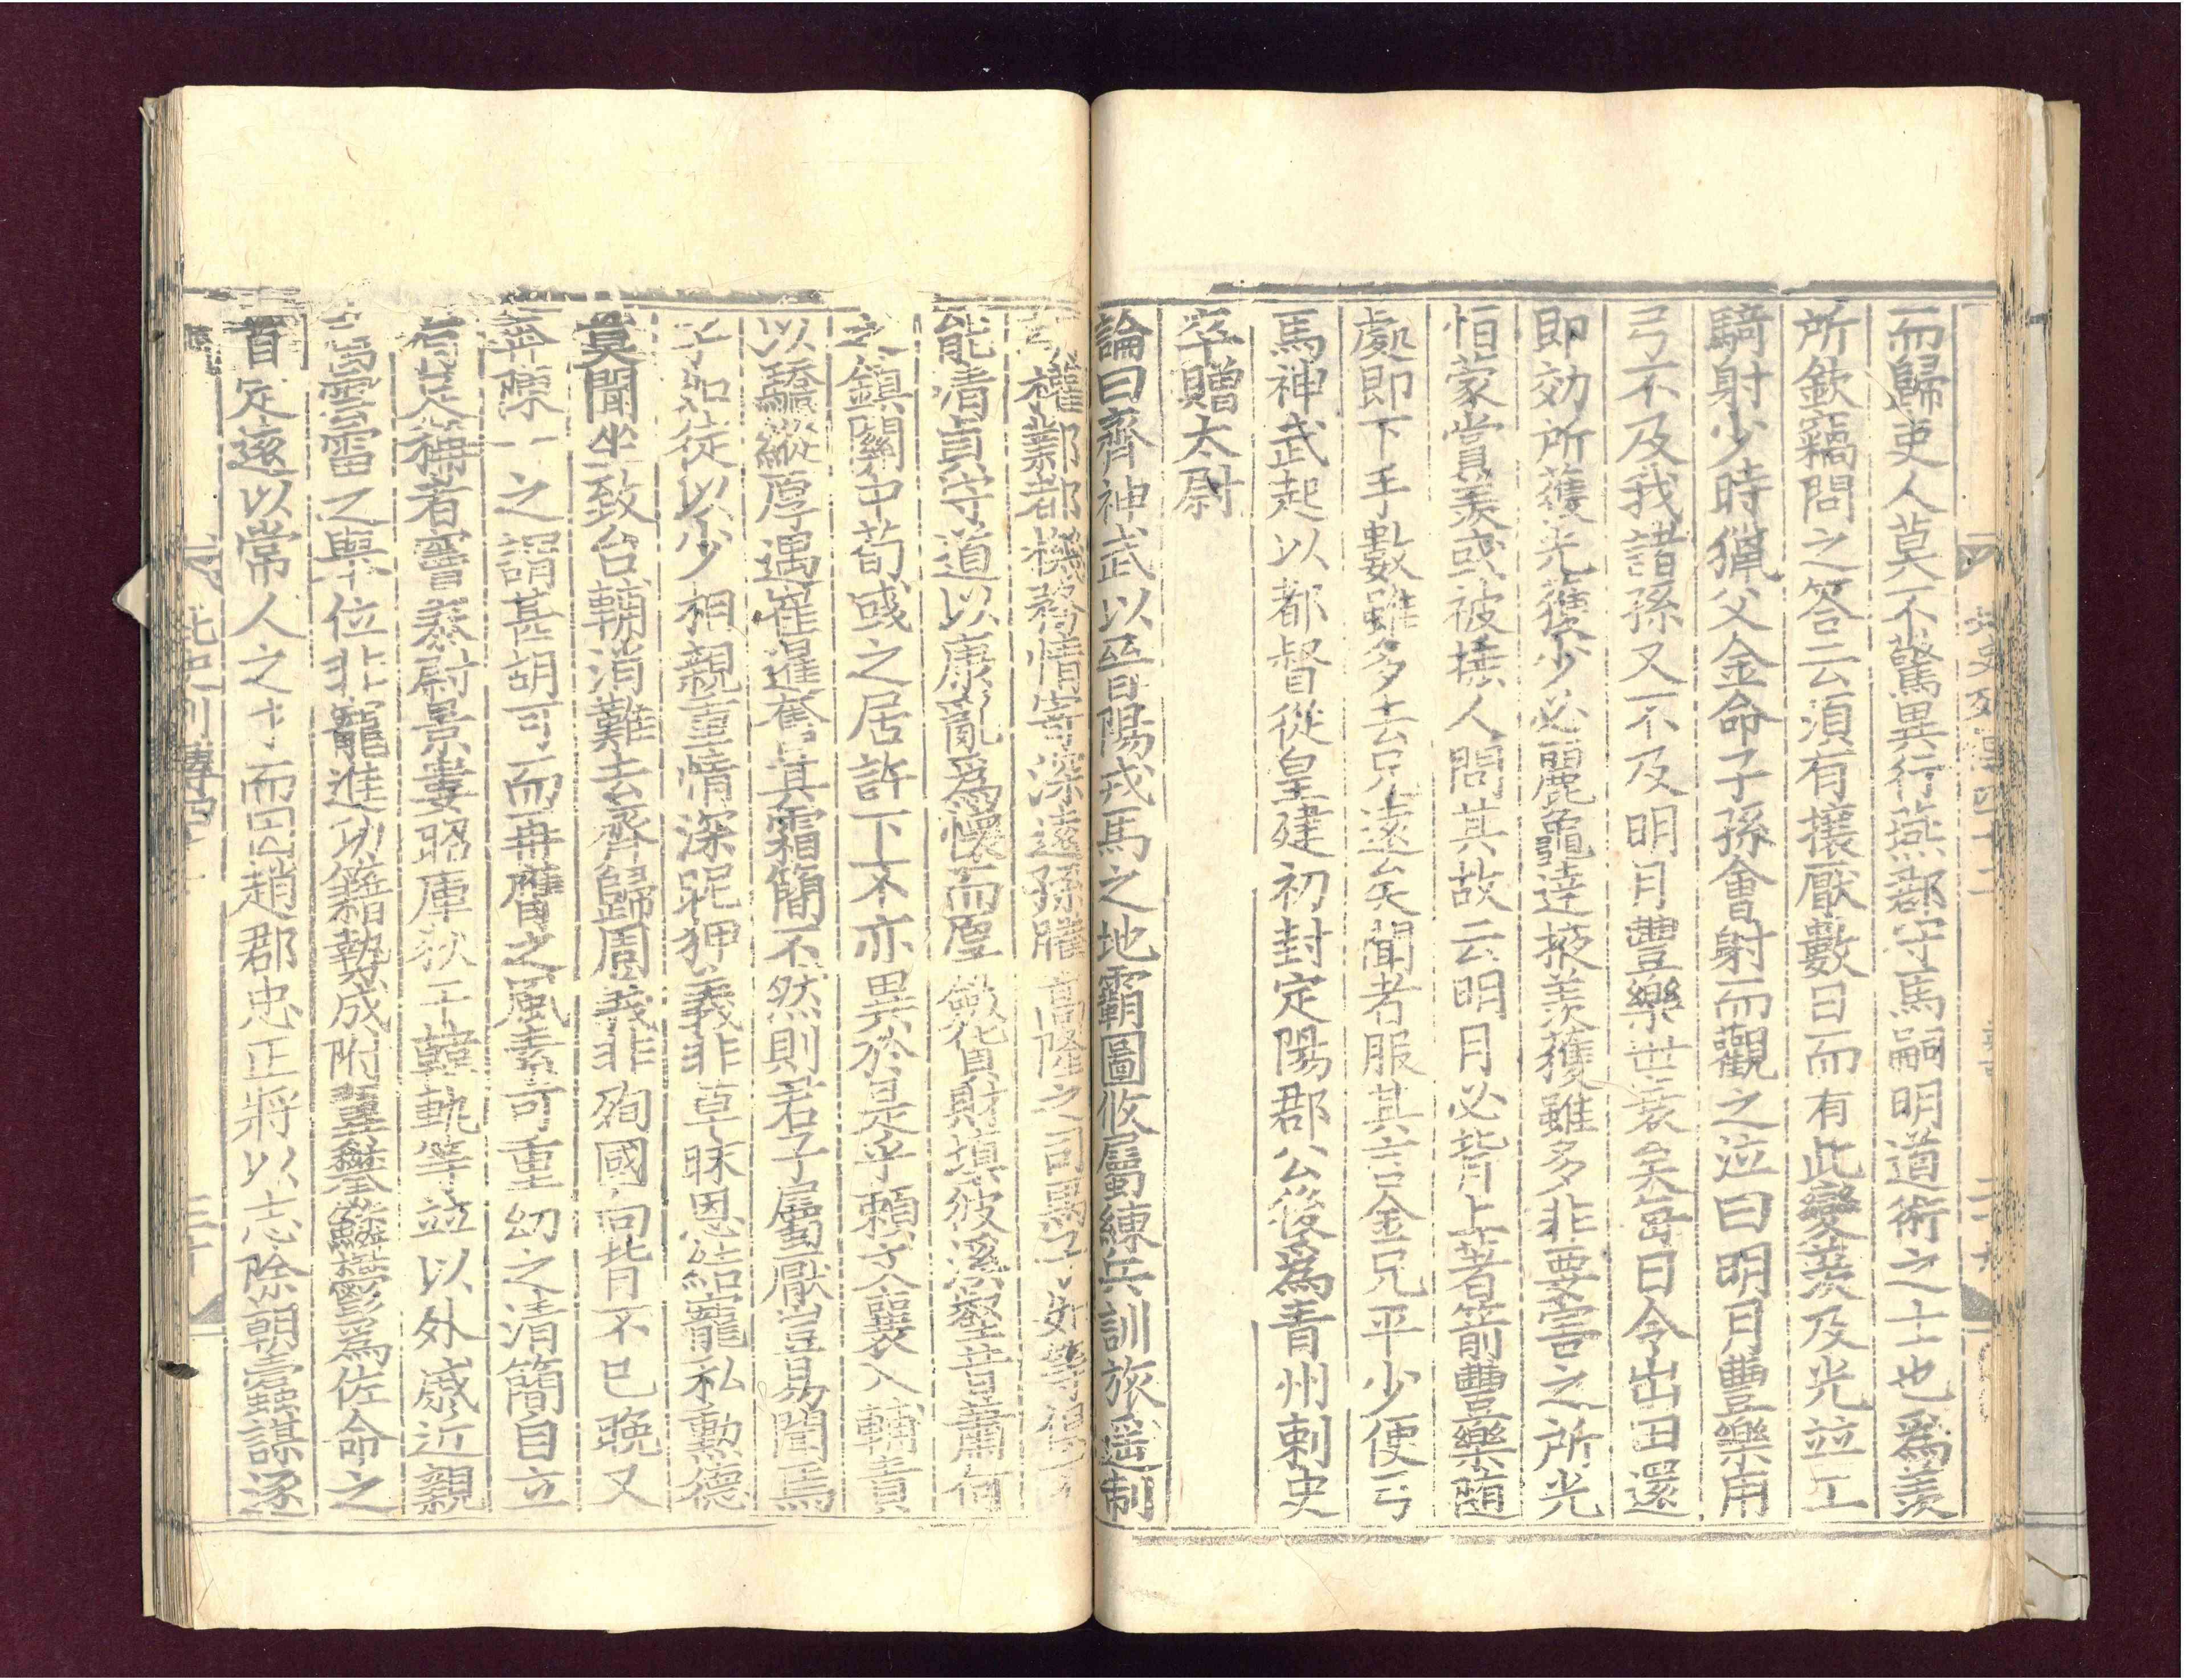 而歸吏人莫不驚異行燕郡守馬嗣明道術之士也爲羨
所欽竊問之答云須有攘厭數日而有此變羨及光並工
騎射少時獵父金命子孫會射而觀之泣曰明月豐樂用
弓不及我諸孫又不及明月豐樂世衰矣每日令出田還
即効所獲光獲少必麗龜達掖羨獲雖多非要害之所光
恒蒙賞羨或被捶人問其故云明月必背上著箭豐樂隨
處即下手數雖多去兄遠矣聞者服其言金兄平少便弓
馬神武起以都督從皇建初封定陽郡公後爲青州刺史
卒贈太尉
論曰齊神武以晉陽戎馬之地霸圖攸屬練兵訓旅遥制
權鄴都機務情寄深遠孫騰高隆之司馬子如等俱不
能清貞守道以康亂爲懷而厚斂貨財塡彼溪壑昔蕭何
之鎮關中荀彧之居許下不亦異於是乎賴文襄入輔責
以驕縱厚遇崔暹奮其霜簡不然則君子屬厭豈易聞焉
子如徒以少相親重情深昵狎義非草昧恩結寵私勳德
莫聞坐致台輔消難去齊歸周義非殉國向背不已晚又
奔陳一之謂甚胡可而再膺之風素可重幼之清簡自立
有足稱者竇泰尉景婁昭厙狄干韓軌等並以外戚近親
屬雲雷之舉位非寵進功籍勢成附翼攀鱗鬱爲佐命之
首定遠以常人之才而因趙郡忠正將以志除朝蠹謀逐
北史列傳四十二
二十九
北史列傳四十二
三十